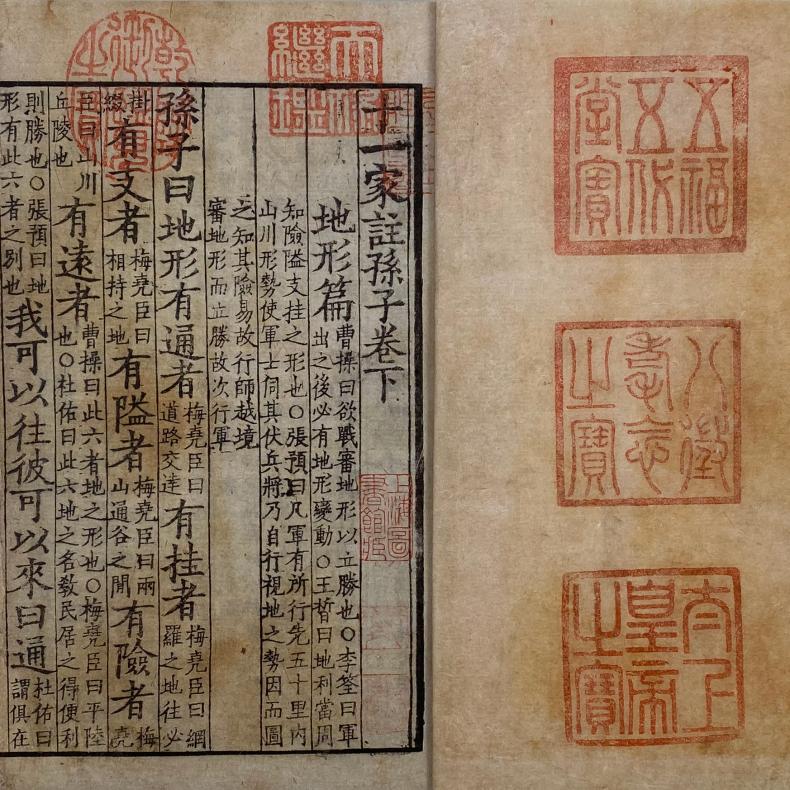 五福
五代
堂寶
八徵
耄念
之寶
太上
皇帝
之寶
天祿
繼鑑
乾隆
御覽
之寶
十一家註孫子卷下
上海圖
書館藏
地形篇
曹操曰欲戰審地形以立勝也○李筌曰軍
出之後必有地形變動○王晳曰地利當周
知險隘支挂之形也○張預曰凡軍有所行先五十里內
山川形勢使軍士伺其伏兵將乃自行視地之勢因而圖
之知其險易故行師越境
審地形而立勝故次行軍
孫子曰地形有通者
梅堯臣曰
道路交達
有挂者
梅堯臣曰網
羅之地往必
掛
綴
有支者
梅堯臣曰
相持之地
有隘者
梅堯臣曰兩
山通谷之間
有險者
梅
堯
臣曰山川
丘陵也
有遠者
曹操曰此六者地之形也○梅堯臣曰平陸
也○杜佑曰此六地之名教民居之得便利
則勝也○張預曰地
形有此六者之別也
我可以往彼可以來曰通
杜佑曰
謂俱在